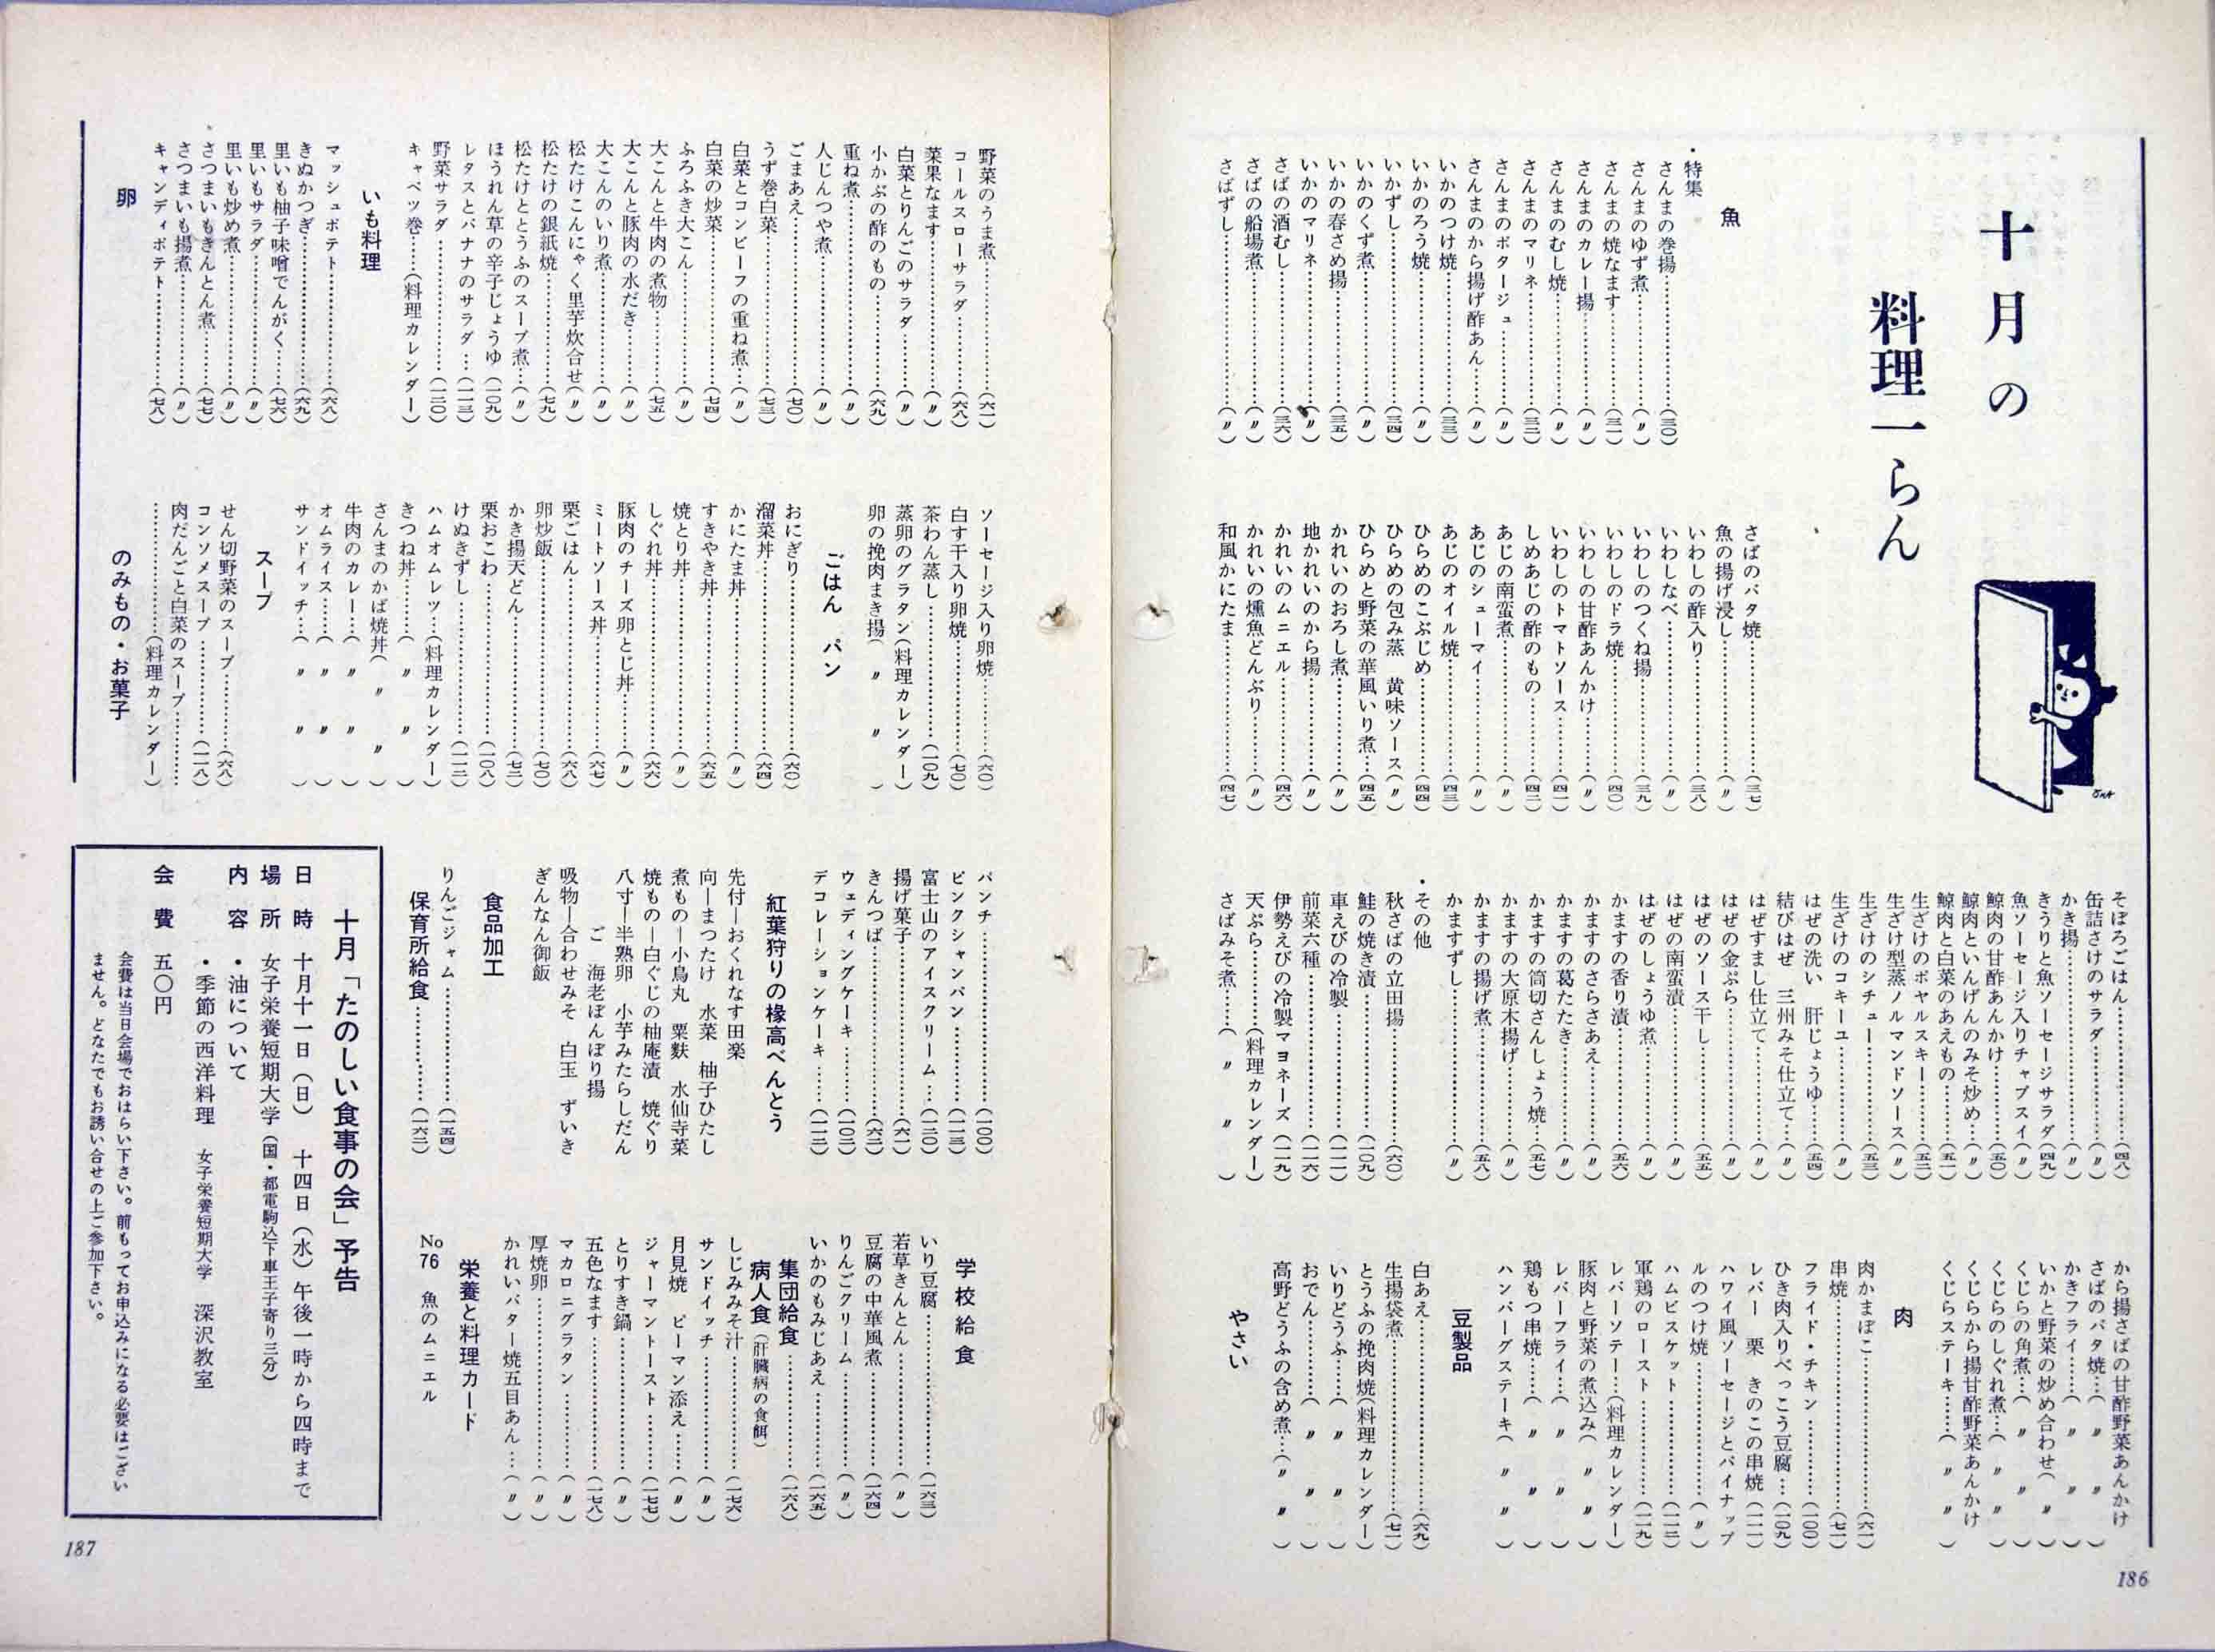 十月の
料理一らん
魚
・特集
さんまの巻揚……(三〇)
さんまのゆず煮……(〃)
さんまの焼なます……(三一)
さんまのカレー揚……(〃)
さんまのむし焼……(〃)
さんまのマリネ……(三二)
さんまのポタージュ……(〃)
さんまのから揚げ酢あん……(〃)
いかのつけ焼……(三三)
いかのろう焼……(〃)
いかずし……(三四)
いかのくず煮……(〃)
いかの春さめ揚……(三五)
いかのマリネ……(〃)
さばの酒むし……(三六)
さばの船場煮……(〃)
さばずし……(〃)
さばのバタ焼……(三七)
魚の揚げ浸し……(〃)
いわしの酢入り……(三八)
いわしなべ……(〃)
いわしのつくね揚……(三九)
いわしのドラ焼……(四〇)
いわしの甘酢あんかけ……(〃)
いわしのトマトソース……(四一)
しめあじの酢のもの……(四二)
あじの南蛮煮……(〃)
あじのシューマイ……(〃)
あじのオイル焼……(四三)
ひらめのこぶじめ……(四四)
ひらめの包み蒸 黄味ソース(〃)
ひらめと野菜の華風いり煮…(四五)
かれいのおろし煮……(〃)
地かれいのから揚……(〃)
かれいのムニエル……(四六)
かれいの燻魚どんぶり……(〃)
和風かにたま……(四七)
そぼろごはん……(四八)
缶詰さけのサラダ……(〃)
かき揚……(〃)
きうりと魚ソーセージサラダ(四九)
魚ソーセージ入りチャプスイ(〃)
鯨肉の甘酢あんかけ……(五〇)
鯨肉といんげんのみそ炒め…(〃)
鯨肉と白菜のあえもの……(五一)
生ざけのボヤルスキー……(五二)
生ざけ型蒸ノルマンドソース(〃)
生ざけのシチュー……(五三)
生ざけのコキーユ……(〃)
はぜの洗い 肝じょうゆ……(五四)
結びはぜ 三州みそ仕立て…(〃)
はぜすまし仕立て……(〃)
はぜの金ぷら……(〃)
はぜのソース干し……(五五)
はぜの南蛮漬……(〃)
はぜのしょうゆ煮……(〃)
かますの香り漬……(五六)
かますのさらさあえ……(〃)
かますの葛たたき……(〃)
かますの筒切さんしょう焼…(五七)
かますの大原木揚げ……(〃)
かますの揚げ煮……(五八)
かますずし……(〃)
・その他
秋さばの立田揚……(六〇)
鮭の焼き漬……(一〇九)
車えびの冷製……(一一二)
前菜六種……(一一六)
伊勢えびの冷製マヨネーズ(一一九)
天ぷら……(料理カレンダー)
さばみそ煮……(〃 〃)
から揚さばの甘酢野菜あんかけ
さばのバタ焼…(〃 〃)
かきフライ……(〃 〃)
いかと野菜の炒め合わせ(〃 〃)
くじらの角煮…(〃 〃)
くじらのしぐれ煮…(〃 〃)
くじらから揚甘酢野菜あんかけ
くじらステーキ……(〃 〃)
肉
肉かまぼこ……(六一)
串焼……(七一)
フライド・チキン……(一〇〇)
ひき肉入りべっこう豆腐…(一〇九)
レバー 栗 きのこの串焼(一一一)
ハワイ風ソーセージとパイナップ
ルのつけ焼……(〃)
ハムビスケット……(一一三)
軍鶏のロースト……(一一九)
レバーソテー…(料理カレンダー)
豚肉と野菜の煮込み(〃 〃)
レバーフライ…(〃 〃)
鶏もつ串焼……(〃 〃)
ハンバーグステーキ(〃 〃)
豆製品
白あえ……(六九)
生揚袋煮……(七一)
とうふの挽肉焼(料理カレンダー)
いりどうふ……(〃 〃)
おでん……(〃 〃)
高野どうふの含め煮…(〃 〃)
やさい
186
野菜のうま煮……(六一)
コールスローサラダ……(六八)
菜果なます……(〃)
白菜とりんごのサラダ……(〃)
小かぶの酢のもの……(六九)
重ね煮……(〃)
人じんつや煮……(〃)
ごまあえ……(七〇)
うず巻白菜……(七三)
白菜とコンビーフの重ね煮…(〃)
白菜の炒菜……(七四)
ふろふき大こん……(〃)
大こんと牛肉の煮物……(七五)
大こんと豚肉の水だき……(〃)
大こんのいり煮……(〃)
松たけこんにゃく里芋炊合せ(〃)
松たけの銀紙焼……(七九)
松たけととうふのスープ煮…(〃)
ほうれん草の辛子じょうゆ(一〇九)
レタスとバナナのサラダ…(一一三)
野菜サラダ……(一二〇)
キャベツ巻……(料理カレンダー)
いも料理
マッシュポテト……(六八)
きぬかつぎ……(六九)
里いも柚子味噌でんがく…(七六)
里いもサラダ……(〃)
里いも炒め煮……(〃)
さつまいもきんとん煮……(七七)
さつまいも揚煮……(〃)
キャンディポテト……(七八)
卵
ソーセージ入り卵焼……(六〇)
白す干入り卵焼……(七〇)
茶わん蒸し……(一〇九)
蒸卵のグラタン(料理カレンダー)
卵の挽肉まき揚(〃 〃)
ごはん パン
おにぎり……(六〇)
溜菜丼……(六四)
かにたま丼……(〃)
すきやき丼……(六五)
焼とり丼……(〃)
しぐれ丼……(六六)
豚肉のチーズ卵とじ丼……(〃)
ミートソース丼……(六七)
栗ごはん……(六八)
卵炒飯……(七〇)
かき揚天どん……(七二)
栗おこわ……(一〇八)
けぬきずし……(一一二)
ハムオムレツ…(料理カレンダー)
きつね丼……(〃 〃)
さんまのかば焼丼(〃 〃)
牛肉のカレー…(〃 〃)
オムライス……(〃 〃)
サンドイッチ…(〃 〃)
スープ
せん切野菜のスープ……(六八)
コンソメスープ……(一一八)
肉だんごと白菜のスープ……
……(料理カレンダー)
のみもの・お菓子
パンチ……(一〇〇)
ピンクシャンパン……(一一三)
富士山のアイスクリーム…(一二〇)
揚げ菓子……(六一)
きんつば……(六二)
ウェディングケーキ……(一〇二)
デコレーションケーキ……(一一二)
紅葉狩りの椽高べんとう
先付―おくれなす田楽
向―まつたけ 水菜 柚子ひたし
煮もの―小鳥丸 栗麩 水仙寺菜
焼もの―白ぐじの柚庵漬 焼ぐり
八寸―半熟卵 小芋みたらしだん
ご 海老ぼんぼり揚
吸物―合わせみそ 白玉 ずいき
ぎんなん御飯
食品加工
りんごジャム……(一五四)
保育所給食……(一六二)
学校給食
いり豆腐……(一六三)
若草きんとん……(〃)
豆腐の中華風煮……(一六四)
りんごクリーム……(〃)
いかのもみじあえ……(一六五)
集団給食……(一六八)
病人食(肝臓病の食餌)
しじみみそ汁……(一七六)
サンドイッチ……(〃)
月見焼 ピーマン添え……(〃)
ジャーマントースト……(一七七)
とりすき鍋……(〃)
五色なます……(一七八)
マカロニグラタン……(〃)
厚焼卵……(〃)
かれいバター焼五目あん…(〃)
栄養と料理カード
No76 魚のムニエル
十月「たのしい食事の会」予告
日時 十月十一日(日) 十四日(水)午後一時から四時まで
場所 女子栄養短期大学(国・都電駒込下車王子寄り三分)
内容 ・油について
・季節の西洋料理 女子栄養短期大学 深沢教室
会費 五〇円
会費は当日会場でおはらい下さい。前もってお申込みになる必要はござい
ません。どなたでもお誘い合せの上ご参加下さい。
187